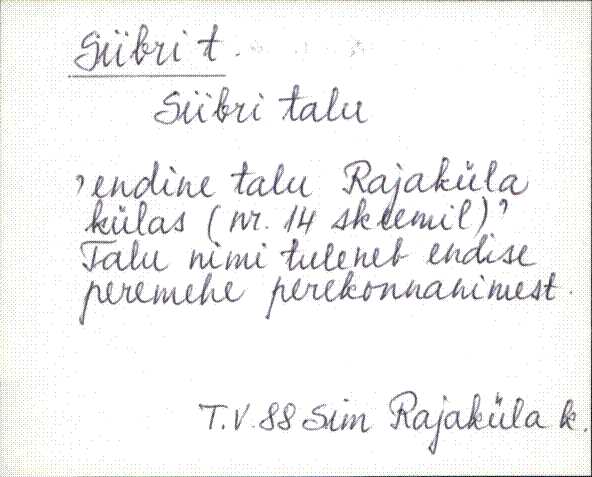 Siibri t.
Siibri talu
'endine talu Rajaküla
külas (nr. 14 skeemil)'
Talu nimi tuleneb endise
peremehe perekonnanimest.
T.V. 88 Sim Rajaküla k.